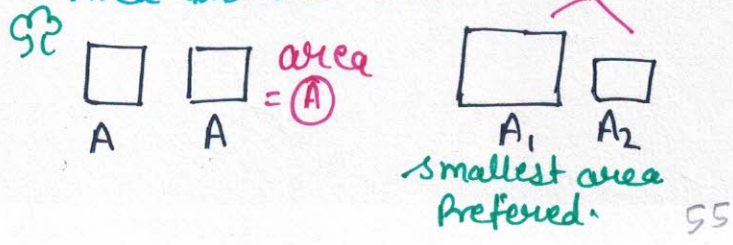 area
= A
A A
A1 A2
smallest area
Prefered.
55